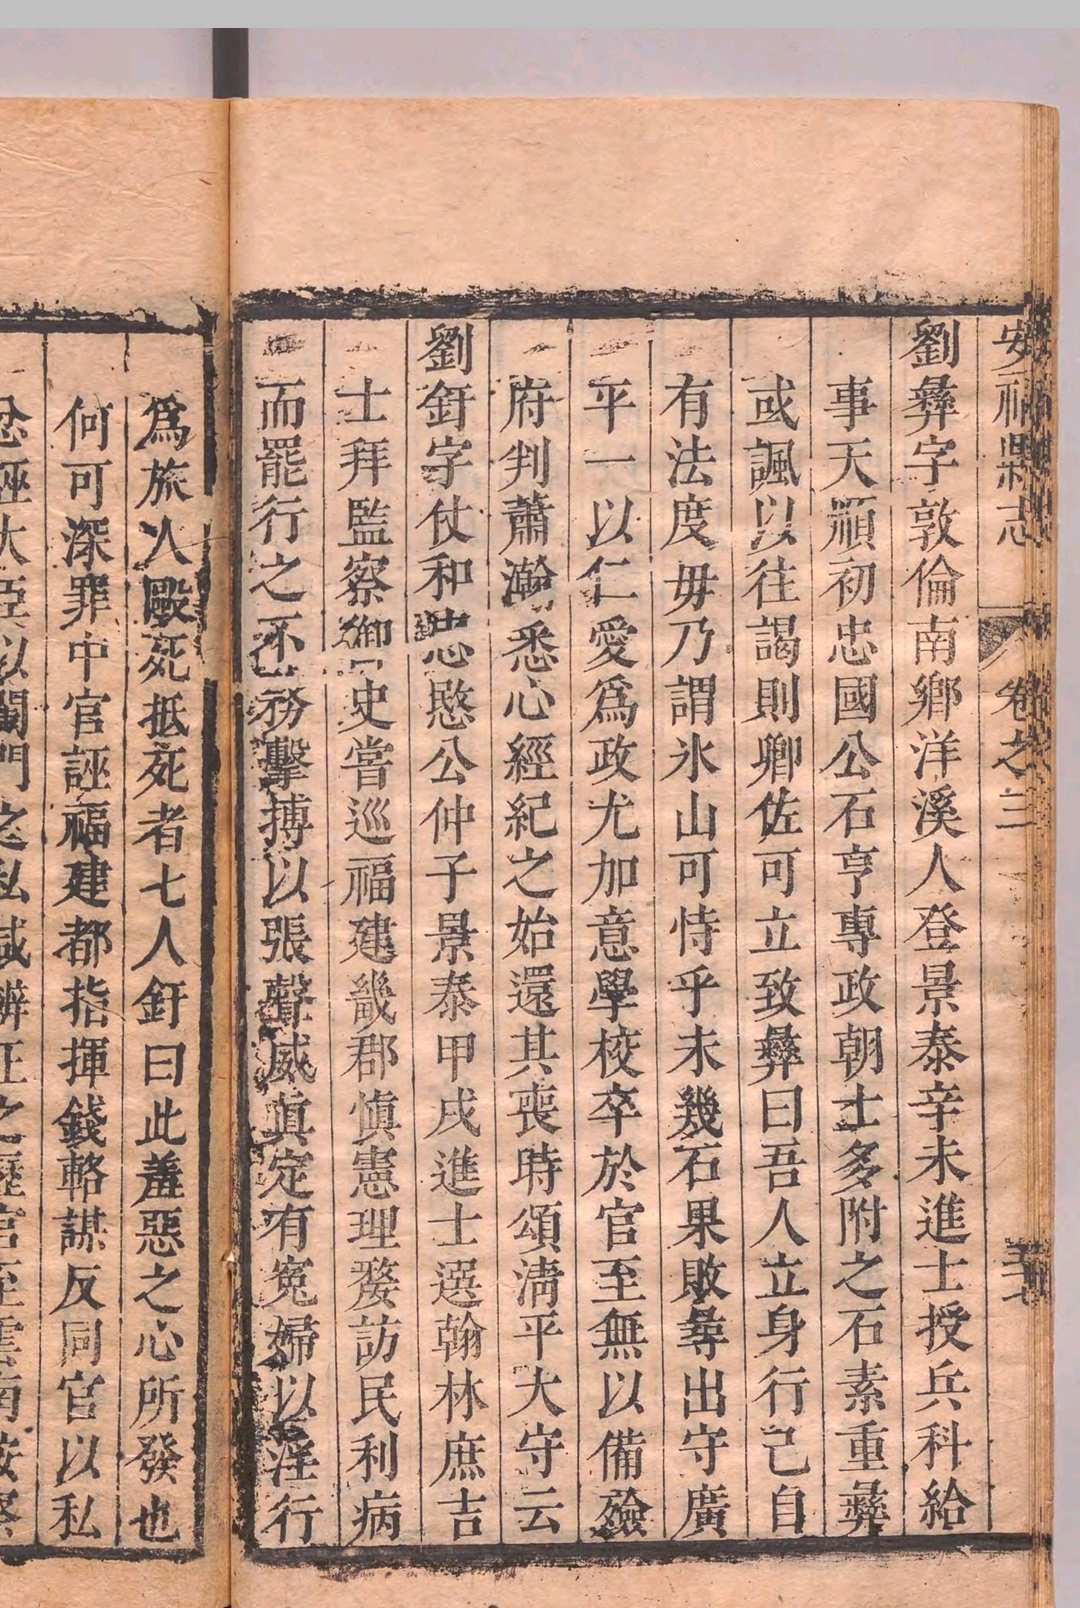 安福縣志 卷之三
劉彝字敦倫南鄉洋溪人登景泰辛未進士授兵科給
事天順初忠國公石亨專政朝士多附之石素重彝
或諷以往謁則卿佐可立致彝曰吾人立身行己自
有法度毋乃謂氷山可恃乎未幾石果敗彝出守廣
平一以仁愛爲政尤加意學校卒於官至無以備殮
府判蕭瀚悉心經紀之始還其喪時頌淸平大守云
劉釪字仗和忠愍公仲子景泰甲戌進士選翰林庶吉
士拜監察御史嘗巡福建畿郡愼憲理獘訪民利病
而罷行之不務擊搏以張聲威眞定有寃婦以淫行
爲旅人毆死抵死者七人釪曰此羞惡之心所發也
何可深罪中官誣福建都指揮錢輅謀反同官以私
忿誣大臣以閨門之私咸辨